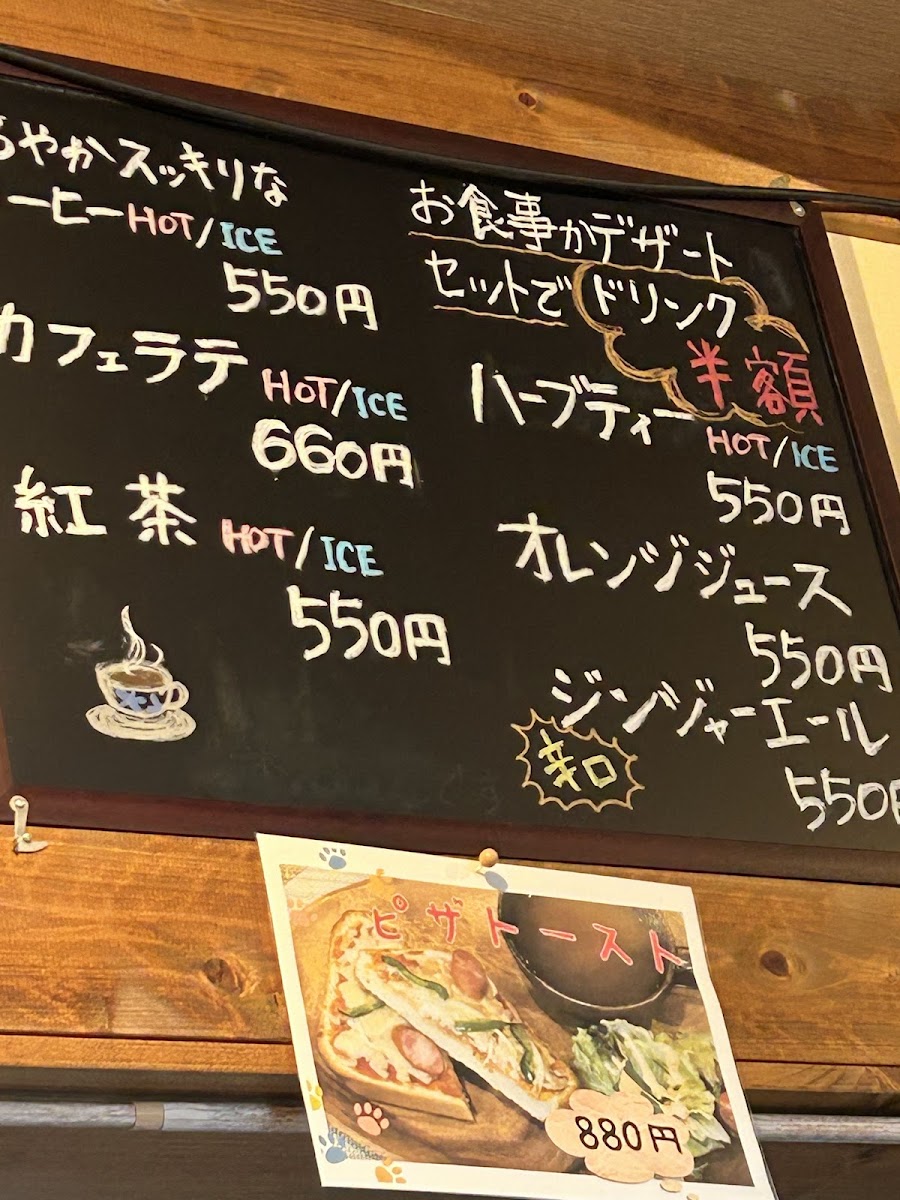 やかスッキリな
ーヒー HOT/ICE
550円
カフェラテ
HOT/ICE
660円
紅茶 HOT/ICE
550円
お食事かデザート
セットでドリンク
半額
ハーブティー
HOT/ICE
550円
オレンジジュース
550円
ジンジャーエール
辛口
550円
ピザトースト
880円